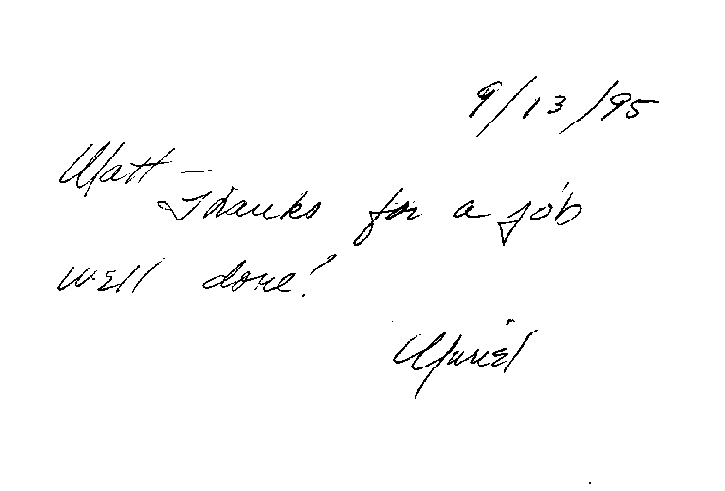 9/13/95
Matt —
Thanks for a job
well done!
Muriel